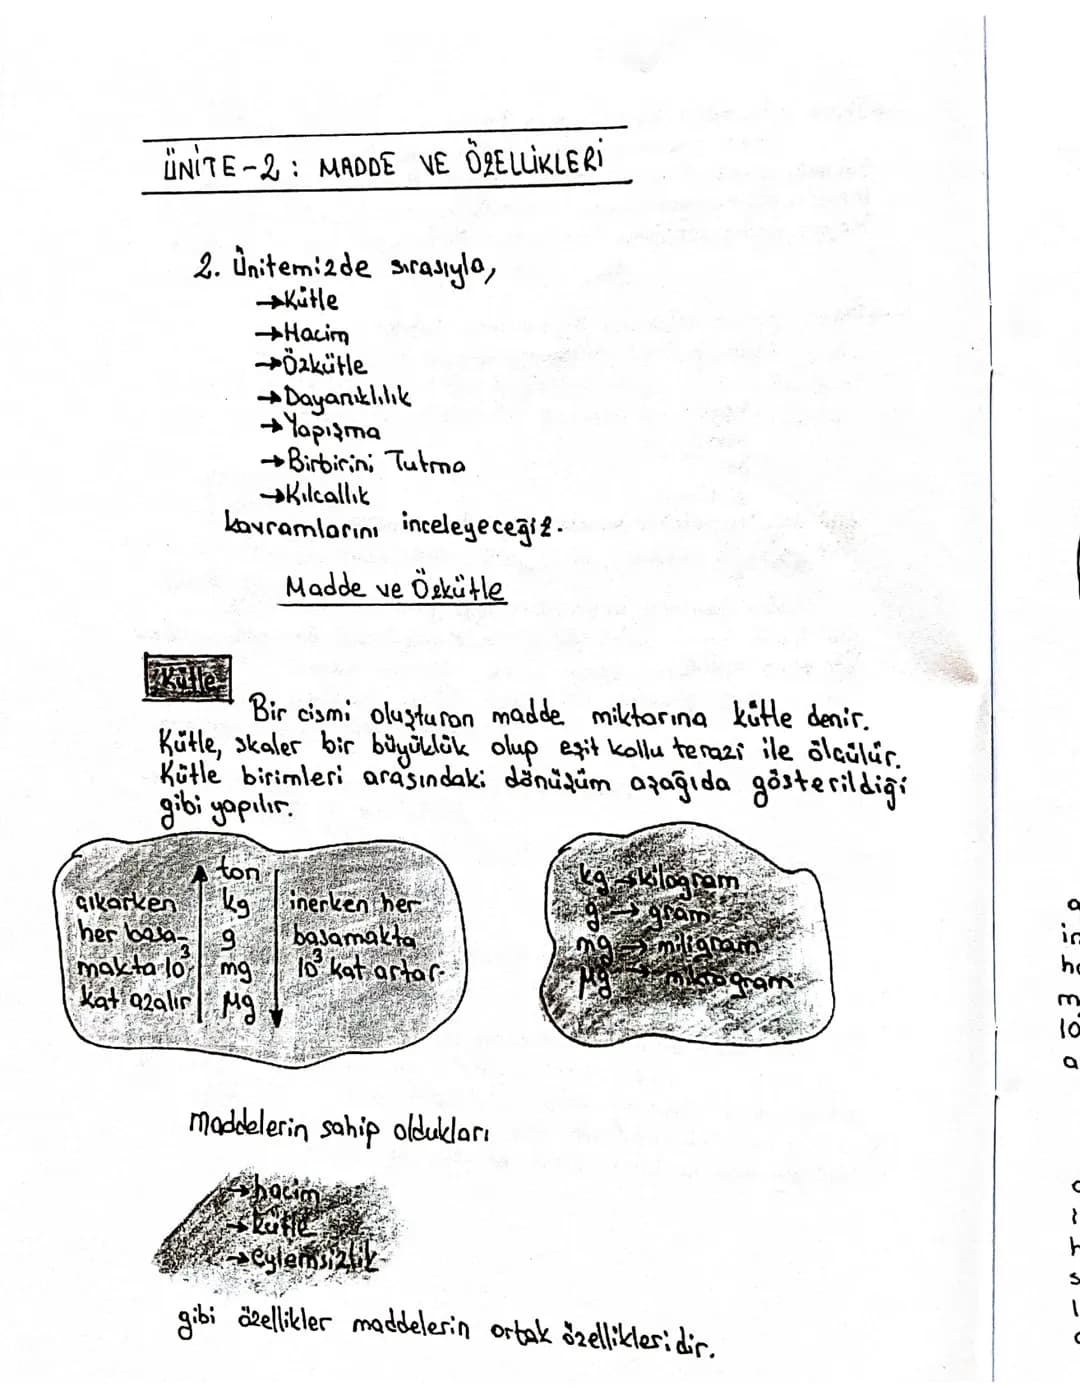 ÜNİTE-2: MADDE VE ÖZELLİKLERİ
2. Ünitemizde sırasıyla,
→Kütle
→Hacim
→Özkütle
→Dayanıklılık
→Yapışma
→Birbirini Tutma
→Kılcallık
kavramlarını inceleyeceğiz.
Madde ve Özkütle
Kütle
Bir cismi oluşturan madde miktarına kütle denir.
Kütle, skaler bir büyüklük olup eşit kollu terazi ile ölçülür.
Kütle birimleri arasındaki dönüşüm aşağıda gösterildiği
gibi yapılır.
çıkarken
her basa-
makta 10³
kat azalır
ton
kg
g
mg
µg
inerken her
basamakta
10³ kat artar.
kg→kilogram
g→gram
mg→miligram
µg→mikrogram
maddelerin sahip oldukları
→hacim
→kütle
→eylemsizlik
gibi özellikler maddelerin ortak özellikleridir.